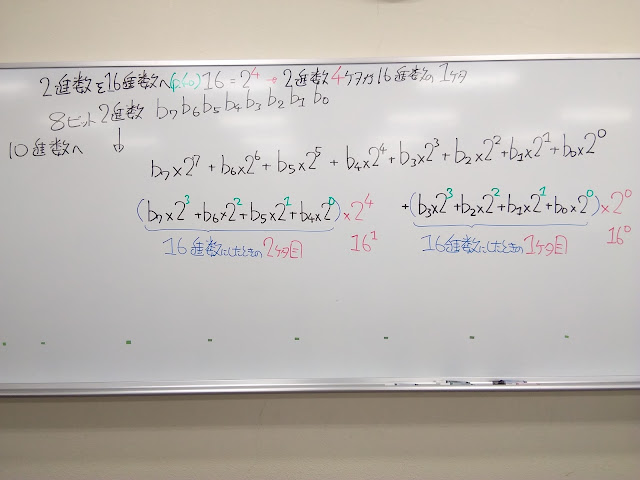 2進数を16進数へ 16 = 2⁴ → 2進数4ケタが16進数の1ケタ
8ビット2進数 b₇b₆b₅b₄b₃b₂b₁b₀
10進数へ ↓
b₇×2⁷ + b₆×2⁶ + b₅×2⁵ + b₄×2⁴ + b₃×2³ + b₂×2² + b₁×2¹ + b₀×2⁰
(b₇×2³ + b₆×2² + b₅×2¹ + b₄×2⁰)×2⁴ + (b₃×2³ + b₂×2² + b₁×2¹ + b₀×2⁰)×2⁰
16進数にしたときの2ケタ目 16¹ 16進数にしたときの1ケタ目 16⁰